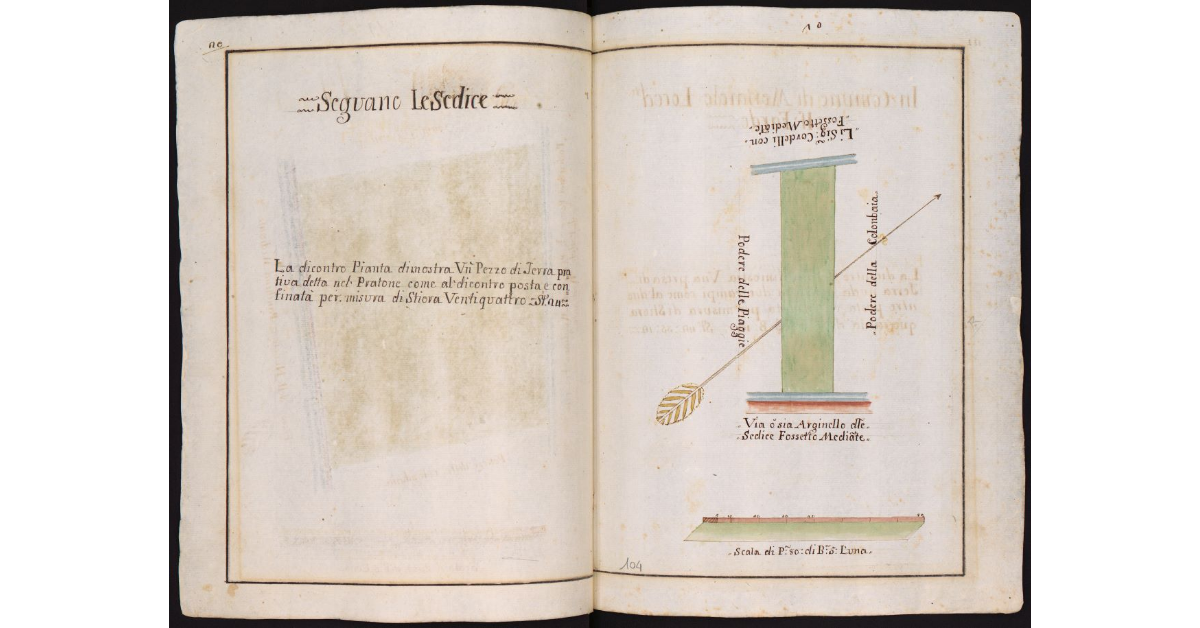 Seguano Le Sedice
La dicontro Pianta dimostra Vn Pezzo di Terra pra
tiva detta nel Pratone come al dicontro posta e con
finata per misura di Stiora Ventiquattro
Li Sig: Cordelli con
Fossetto Mediāte
Podere delle Piaggie
Podere della Colonbaia
Via ò sia Arginello dłe
Sedice Fossetto Mediāte
Scala di P: so: di B: à: Luna
104